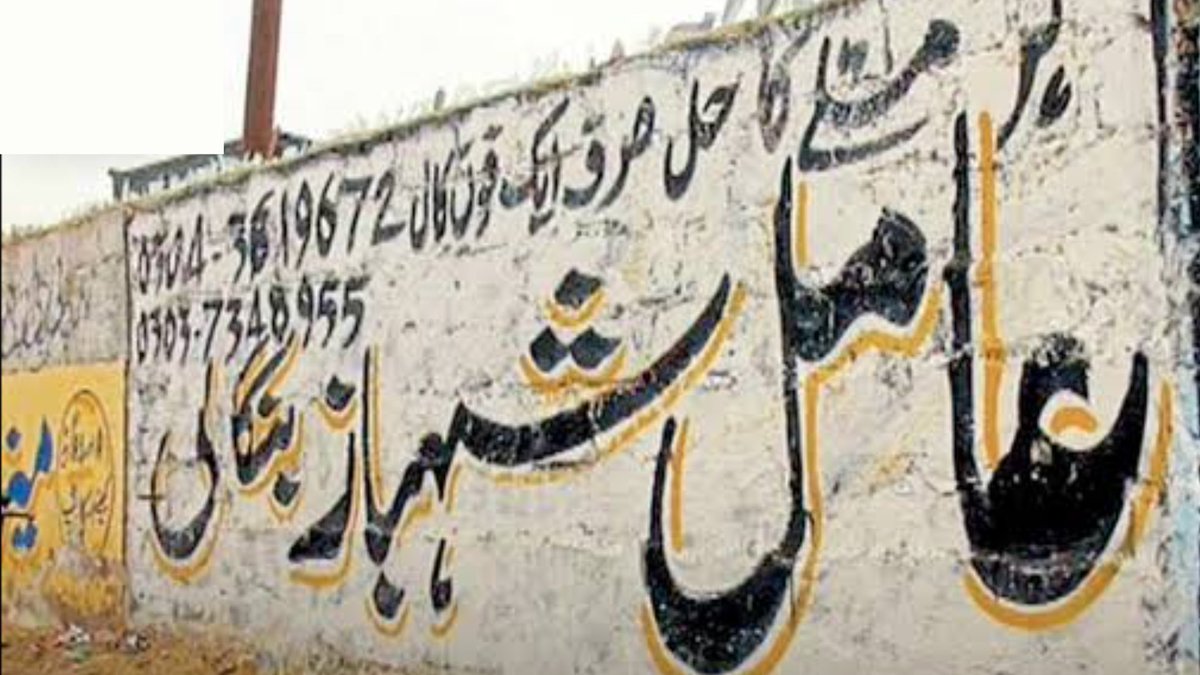 ہر مسئلے کا حل صرف ایک فون کال
0304-3619672
0303-7348955
عامل شہباز بنگالی